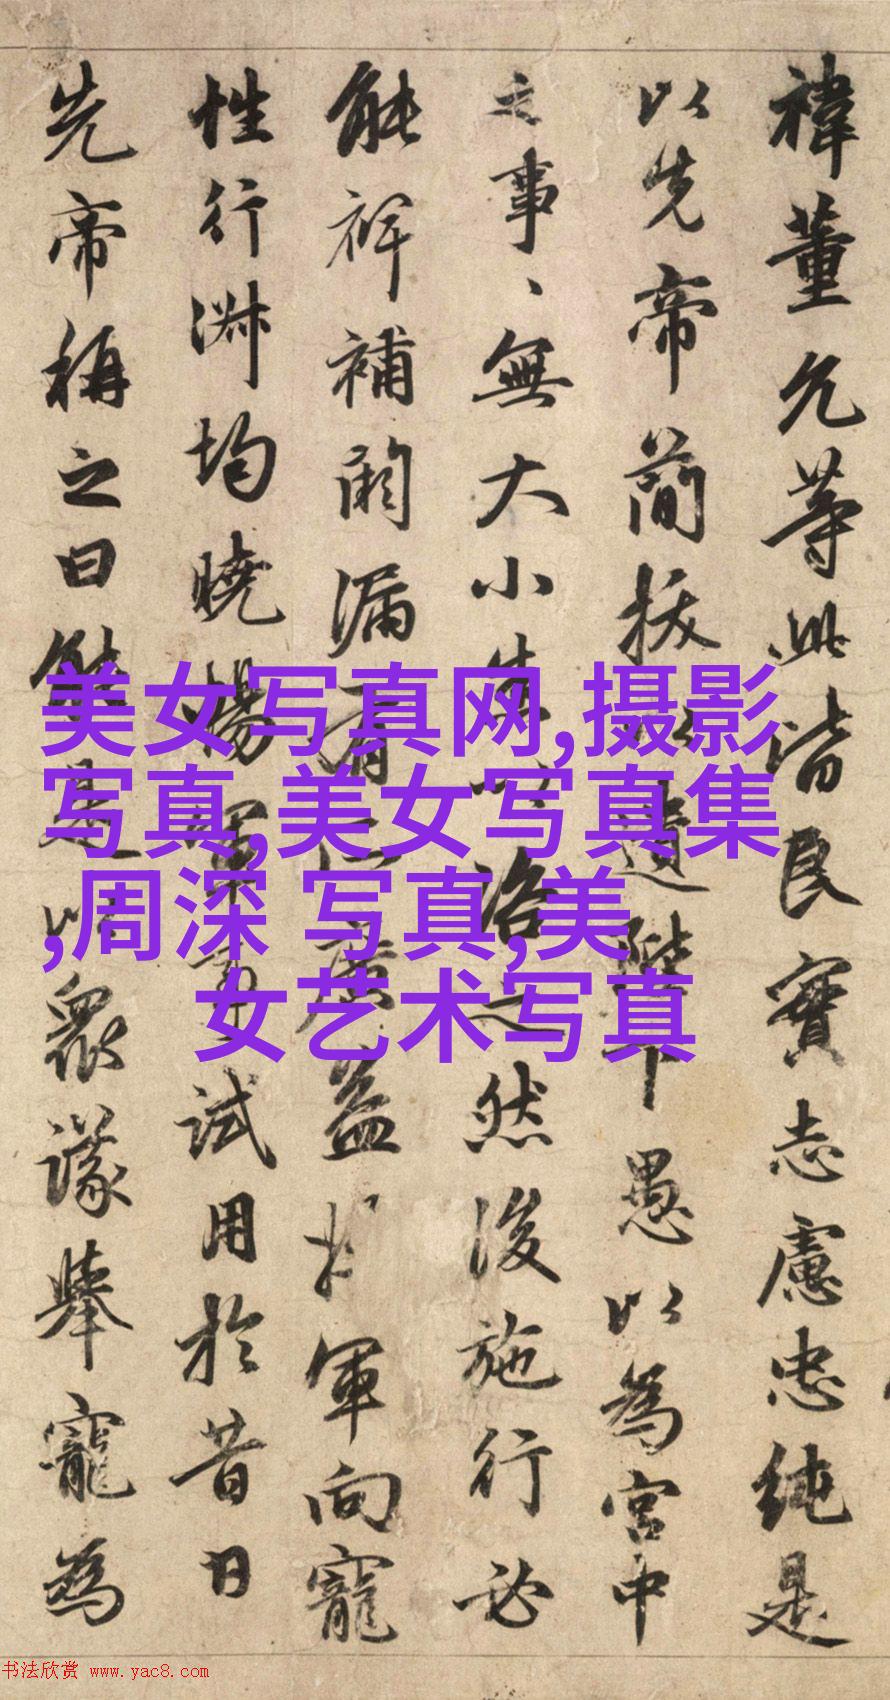 禕董允等此皆良實志慮忠純是
以先帝簡拔以遺陛下愚以為宮中
之事、無大小悉以咨之然後施行必
能裨補闕漏有所廣益將軍向寵
性行淑均曉暢軍事試用於昔日
先帝稱之曰能是以眾議舉寵為
美女写真网,摄影
写真,美女写真集
,周深 写真,美
女艺术写真
书法欣赏 www.yac8.com